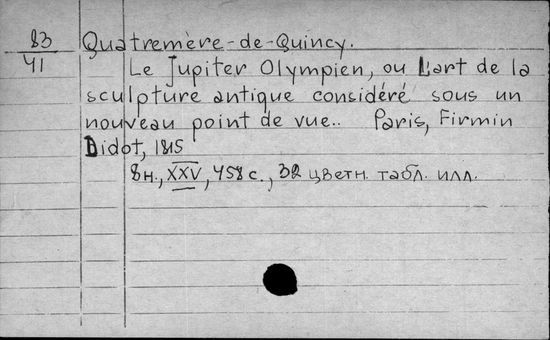 83 Quatremère-de-Quincy.
41 Le Jupiter Olympien, ou L'art de la
sculpture antique considéré sous un
nouveau point de vue.. Paris, Firmin
Didot, 1815
8н., XXV, 458 с., 32 цветн. табл. илл.